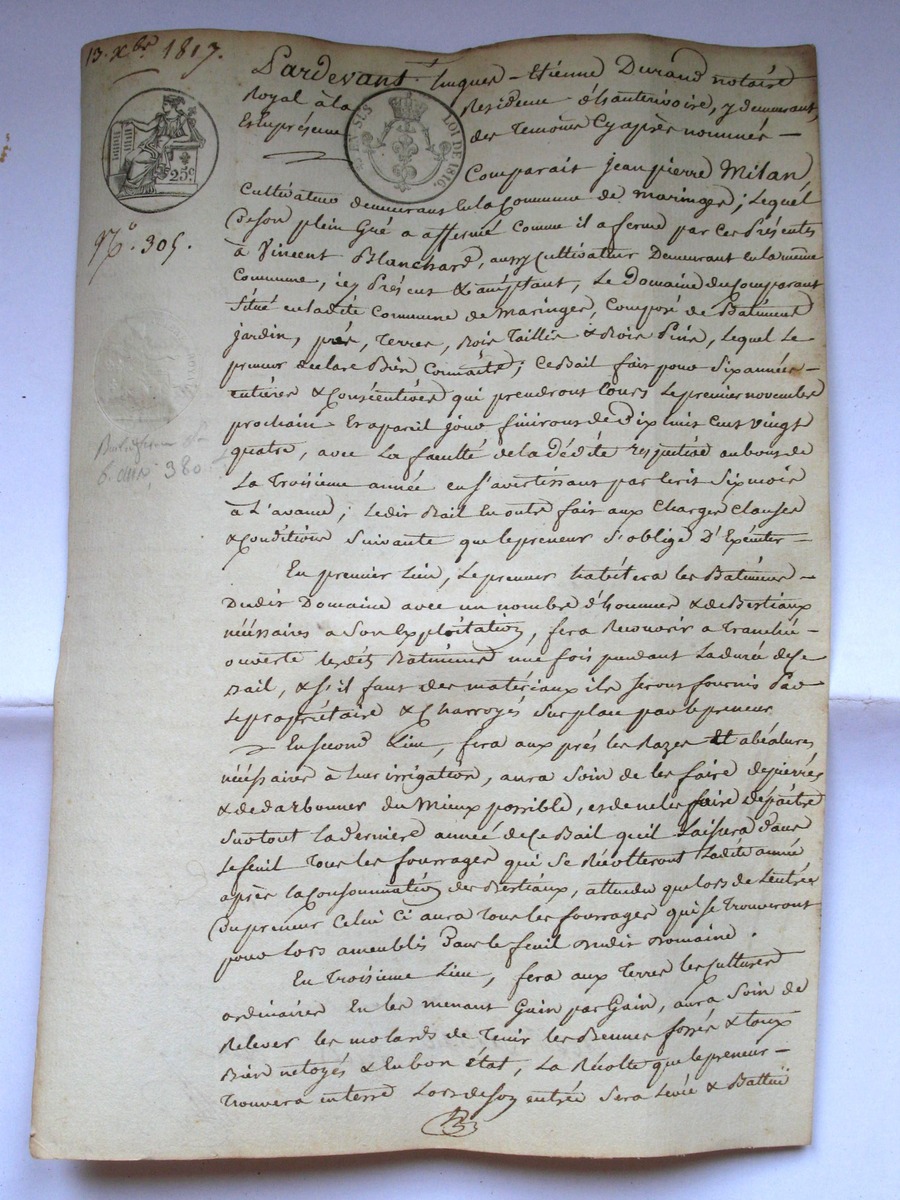 13. Xbre 1817.
Pardevant Hugues - Etienne Durand notaire
Royal à la Residence d'hauterivoire, y demeurant,
En présence des Temoins Cy après nommés —
EN SUS
LOI DE 1816.
25c.
Comparait jean pierre Milan
Cultivateur demeurant En la Commune de maringes; Lequel
De son plein Gré a affermé comme il afferme par Ces Présentes
N.o 305.
à Vincent Blanchard, aussy Cultivateur Demeurant en la même
Commune, icy Présent & acceptant, Le Domaine du Comparant
Situé en ladite Commune de Maringes, Composé de Batiment
jardin, prés, Terres, Bois Taillis & Bois Pins, Lequel Le
preneur declare Bien Connaitre; Ce Bail fait pour Six années
entières & Consécutives qui prendront Cours Le premier novembre
prochain Et a pareil jour finiront de Dix huit Cent vingt
quatre, avec La faculté de la Dédite respective au bout de
6. ans, 380.
La Troisieme année en S'avertissant par Ecrit Six mois
à L'avance; Ledit Bail En outre fait aux Charges Clauses
& Conditions Suivante que le preneur S'oblige D'Exécuter —
En premier Lieu, Le preneur habitera les Batiments —
Dudit Domaine avec un nombre d'hommes & de Bestiaux
nécéssaires a Son Exploitation, fera Recouvrir a Tranchée —
ouverte lesdits Batiments une fois pendant La durée de Ce
Bail, & S'il faut des matériaux ils Seront fournis Par
Le propriétaire & Charroyés Sur place par le preneur
En Second Lieu, fera aux prés les Razes Et abéalures
nécéssaires à Leur irrigation, aura Soin de les faire depierrés
& de darbonner du Mieux possible, et de ne les faire depaitre
Surtout La derniere année de Ce Bail qu'il Laissera dans
Le feuil Tous les fourrages qui Se Récolteront Ladite année
après la Consommation des Bestiaux, attendu que lors de L'entrée
Du preneur Celui Ci aura Tous les fourrages qui Se Trouveront
pour Lors ameublés Dans Le feuil dudit Domaine.
En Troisieme Lieu, fera aux Terres les Cultures
ordinaires En les menant Gain par Gain, aura Soin de
Relever les molards de Tenir les Bennes fossés & Loux
Bien netoyés & En bon état, La Récolte que le preneur —
Trouvera en terre Lors de Son entrée Sera Levée & Battue